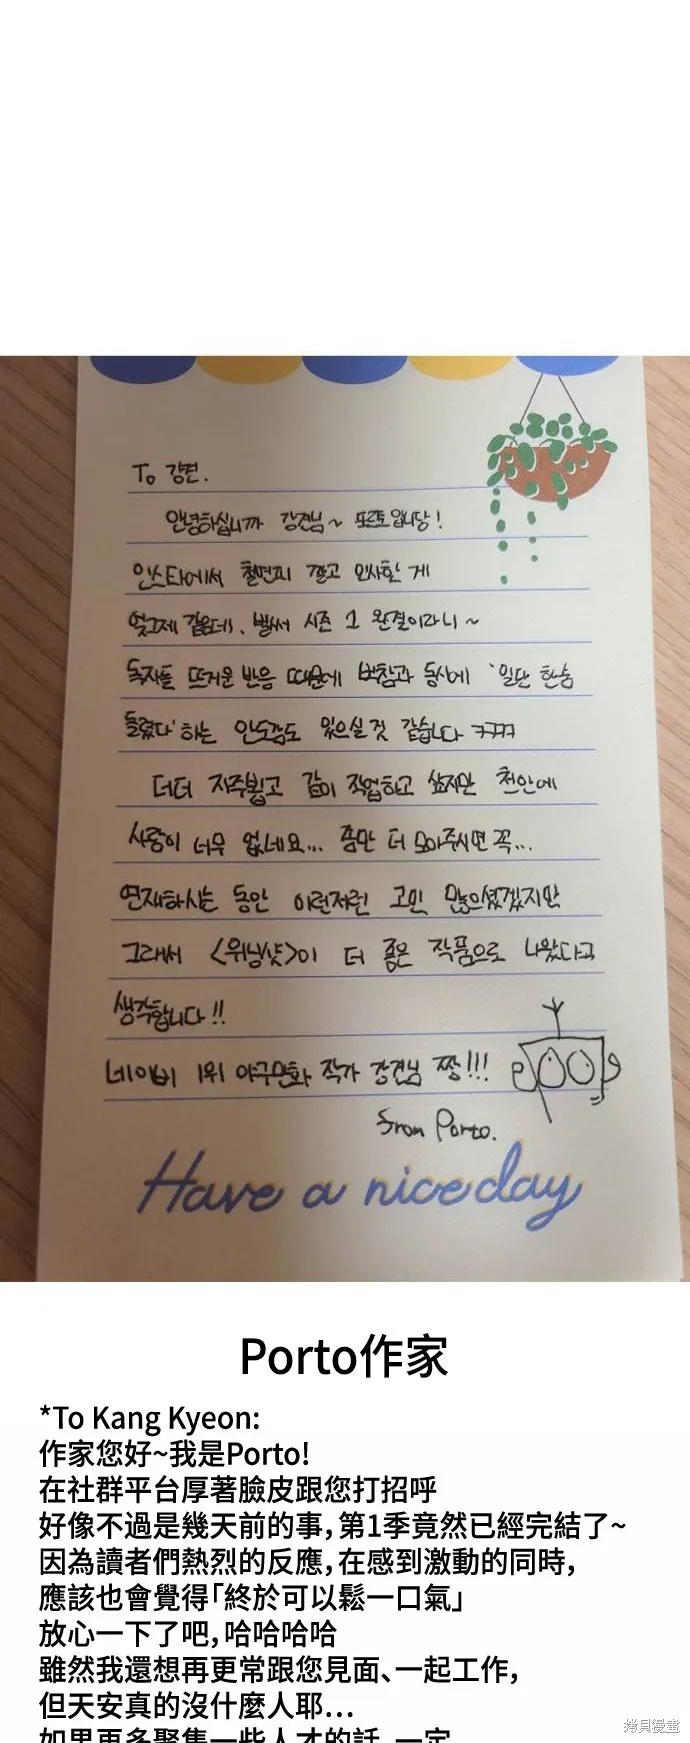 To 강견.
안녕하십니까 강견님~ 포르토입니당!
인스타에서 철면피 깔고 인사한 게
엊그제 같은데, 벌써 시즌 1 완결이라니~
독자들 뜨거운 반응 때문에 벅참과 동시에 '일단 한숨
돌렸다' 하는 안도감도 있으실 것 같습니다 ㅋㅋㅋㅋ
더더 자주 뵙고 같이 작업하고 싶지만 천안에
사람이 너무 없네요... 좀만 더 모아주시면 꼭...
연재하시는 동안 이런저런 고민 많으셨겠지만
그래서 <위닝샷>이 더 좋은 작품으로 나왔다고
생각합니다!!
네이비 1위 야구만화 작가 강견님 짱!!!
from Porto.
Have a nice day
Porto作家
*To Kang Kyeon:
作家您好~我是Porto!
在社群平台厚著臉皮跟您打招呼
好像不過是幾天前的事,第1季竟然已經完結了~
因為讀者們熱烈的反應,在感到激動的同時,
應該也會覺得「終於可以鬆一口氣」
放心一下了吧,哈哈哈哈
雖然我還想再更常跟您見面、一起工作,
但天安真的沒什麼人耶...
如果再多聚集一些人才的話,一定
拷貝漫畫